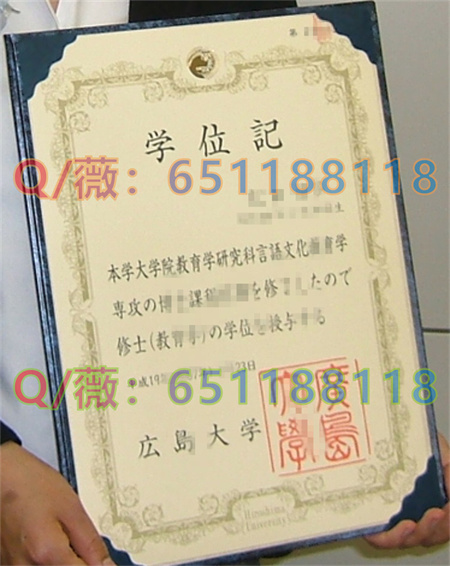 第
学位記
Q/薇：651188118
生
本学大学院教育学研究科言語文化教育学
専攻の博士課程前期を修了したので
修士(教育学)の学位を授与する
平成19 23日
Q/薇：651188118
広島大学
廣島
大學
Hiroshima
University